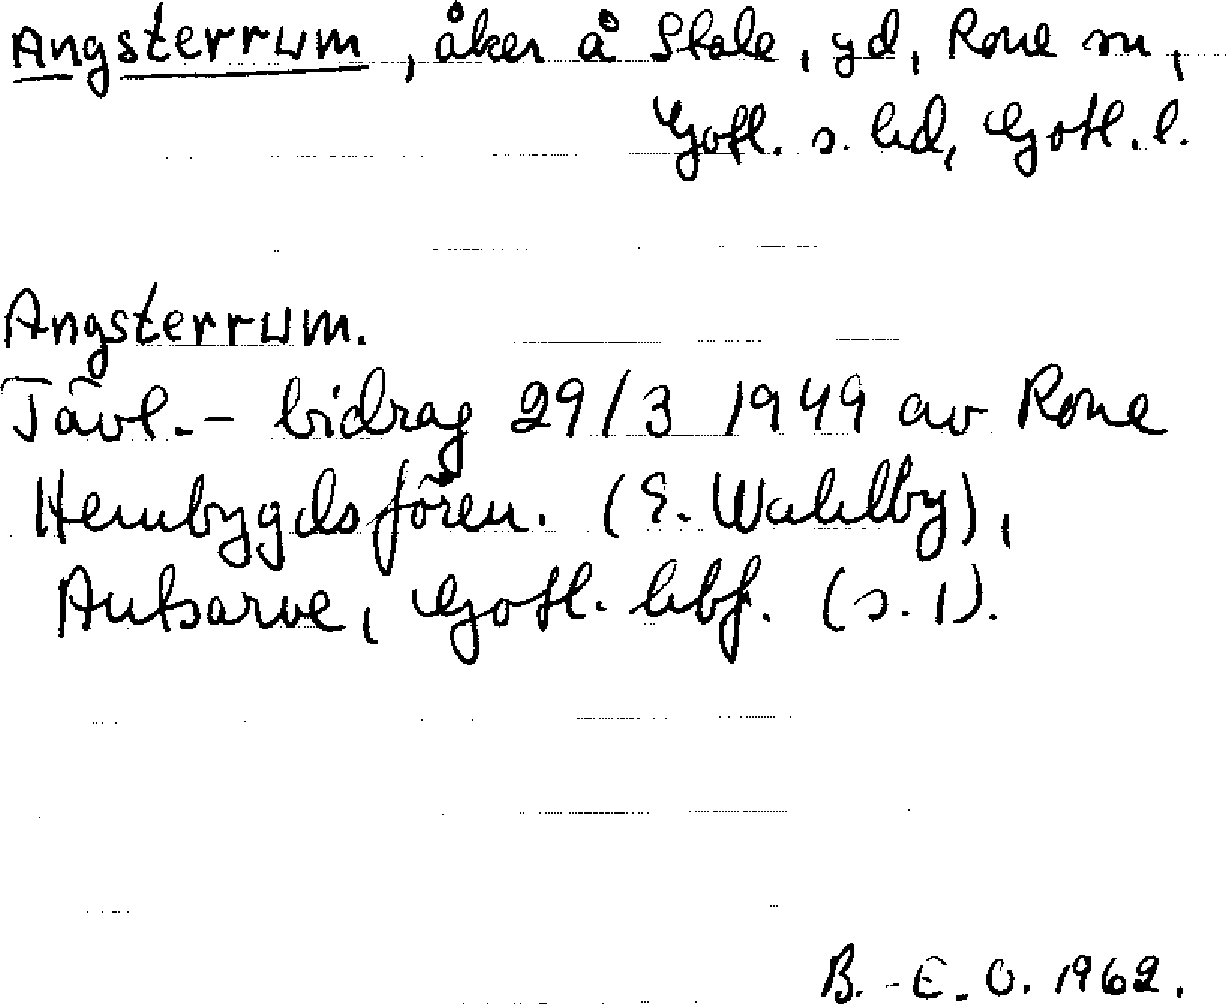 Angsterrum, åker å Stale, gd, Rone sn,
Gotl. s. hd, Gotl. l.
Angsterrum.
Tävl.- bidrag 29/3 1949 av Rone
Hembygdsfören. (E. Wahlby),
Autsarve, Gotl. hbf. (s. 1).
B.-E. O. 1962.